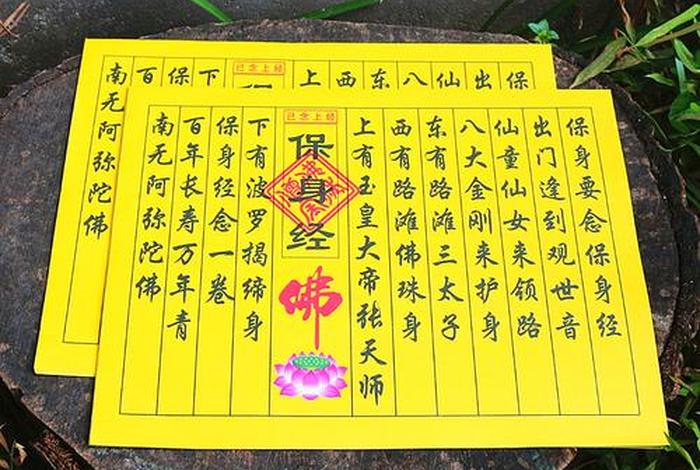 保身要念保身经
出门逢到观世音
仙童仙女来领路
八大金刚来护身
东有路滩三太子
西有路滩佛珠身
上有玉皇大帝张天师
已念上经
保身经
佛
下有波罗揭缔身
保身经念一卷
百年长寿万年青
南无阿弥陀佛
保
出
仙
八
东
西
上
已念上经
下
保
百
南无阿弥陀佛